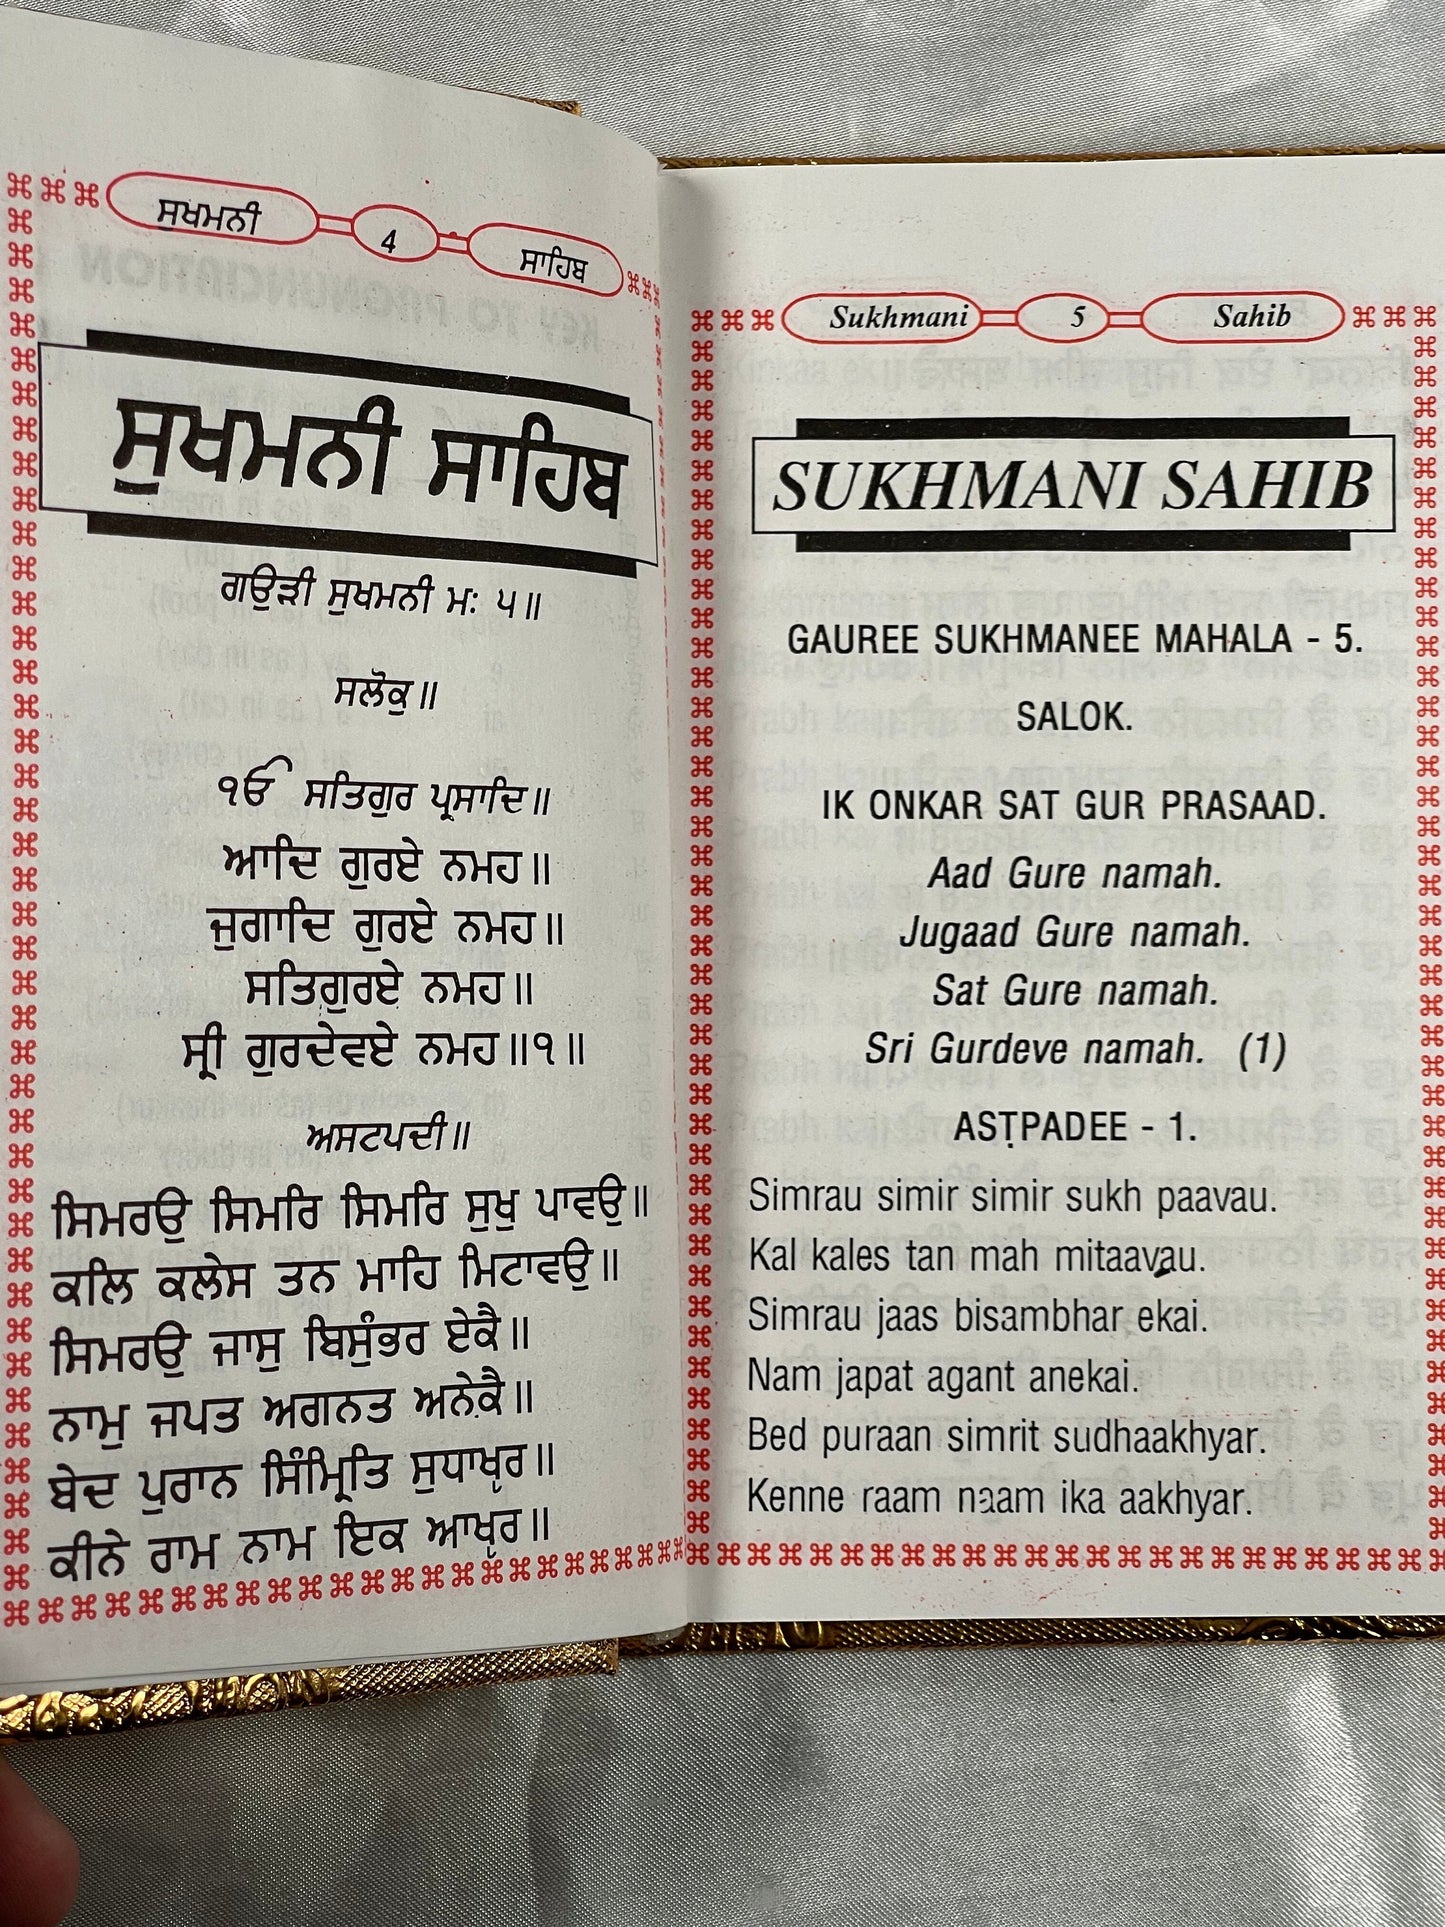 ਸੁਖਮਨੀ 4 ਸਾਹਿਬ
ਸੁਖਮਨੀ ਸਾਹਿਬ
ਗਉੜੀ ਸੁਖਮਨੀ ਮਃ ੫॥
ਸਲੋਕੁ॥
ੴ ਸਤਿਗੁਰ ਪ੍ਰਸਾਦਿ॥
ਆਦਿ ਗੁਰਏ ਨਮਹ॥
ਜੁਗਾਦਿ ਗੁਰਏ ਨਮਹ॥
ਸਤਿਗੁਰਏ ਨਮਹ॥
ਸ੍ਰੀ ਗੁਰਦੇਵਏ ਨਮਹ॥੧॥
ਅਸਟਪਦੀ॥
ਸਿਮਰਉ ਸਿਮਰਿ ਸਿਮਰਿ ਸੁਖੁ ਪਾਵਉ॥
ਕਲਿ ਕਲੇਸ ਤਨ ਮਾਹਿ ਮਿਟਾਵਉ॥
ਸਿਮਰਉ ਜਾਸੁ ਬਿਸੁੰਭਰ ਏਕੈ॥
ਨਾਮੁ ਜਪਤ ਅਗਨਤ ਅਨੇਕੈ॥
ਬੇਦ ਪੁਰਾਨ ਸਿੰਮ੍ਰਿਤਿ ਸੁਧਾਖ੍ਯਰ॥
ਕੀਨੇ ਰਾਮ ਨਾਮ ਇਕ ਆਖ੍ਯਰ॥
Sukhmani 5 Sahib
SUKHMANI SAHIB
GAUREE SUKHMANEE MAHALA - 5.
SALOK.
IK ONKAR SAT GUR PRASAAD.
Aad Gure namah.
Jugaad Gure namah.
Sat Gure namah.
Sri Gurdeve namah. (1)
ASṬPADEE - 1.
Simrau simir simir sukh paavau.
Kal kales tan mah mitaavau.
Simrau jaas bisambhar ekai.
Nam japat agant anekai.
Bed puraan simrit sudhaakhyar.
Kenne raam naam ika aakhyar.